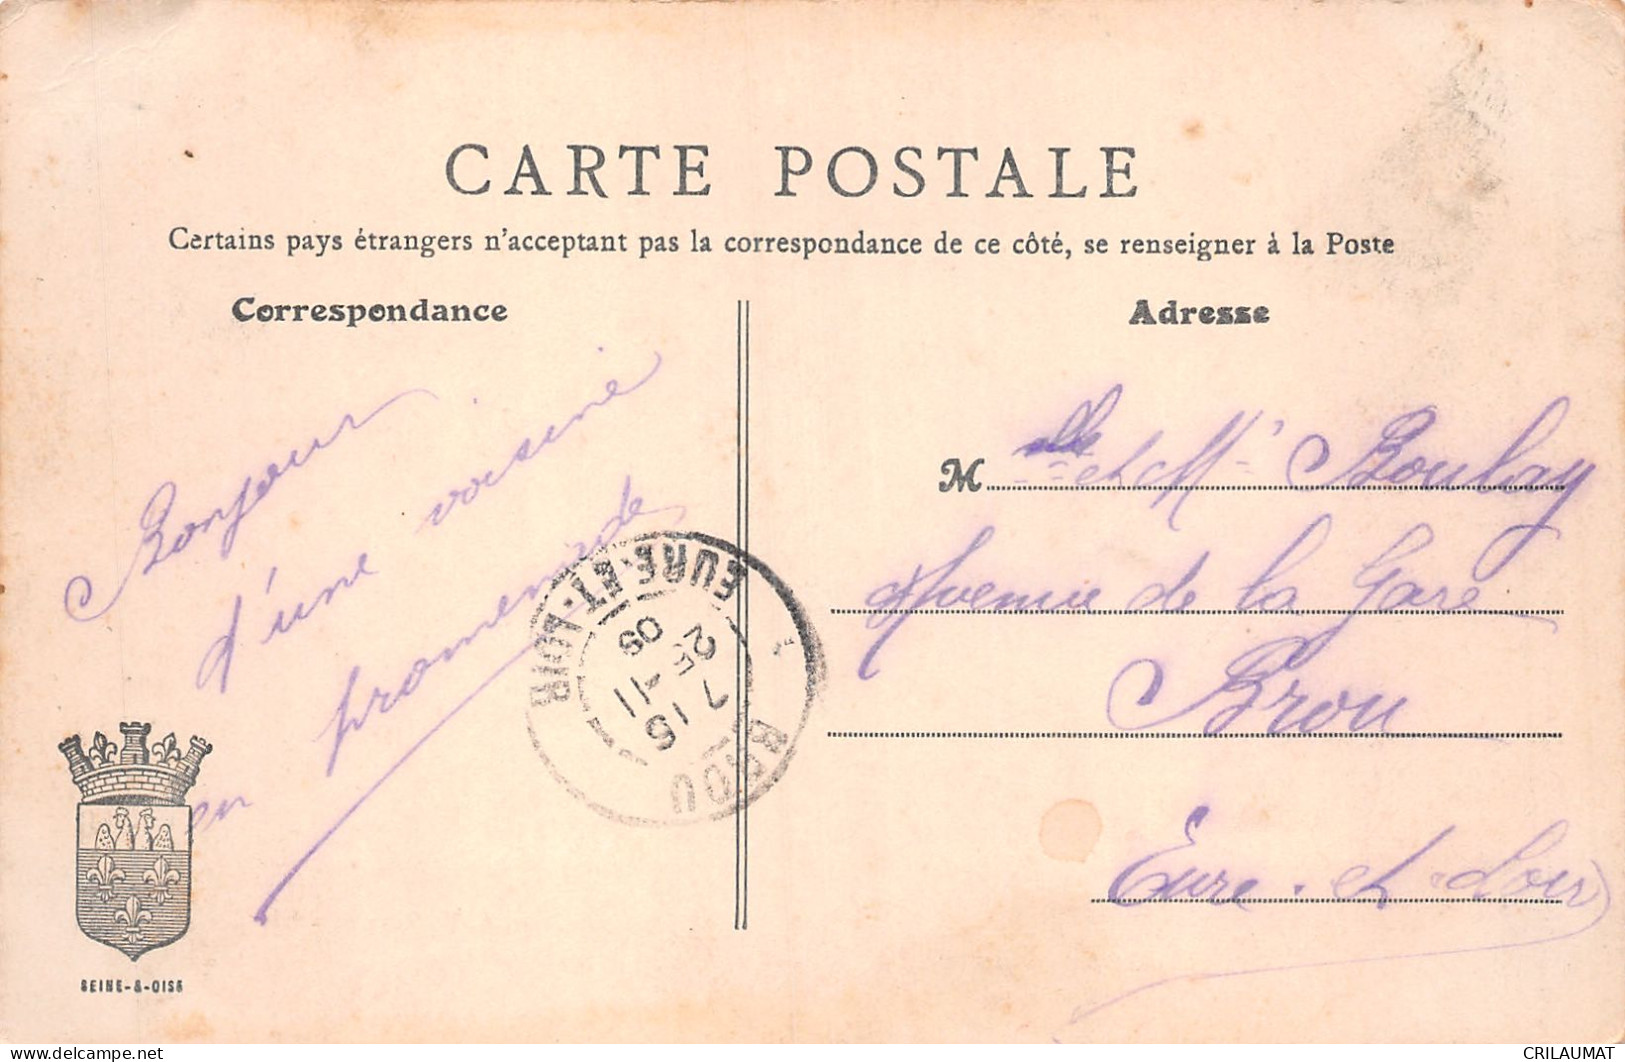 CARTE POSTALE
Certains pays étrangers n'acceptant pas la correspondance de ce côté, se renseigner à la Poste
Correspondance
Adresse
Bonjour
d'une voisine
en promenade
M et Mr Boulay
Avenue de la Gare
Brou
Eure-et-Loir
BROU
EURE-ET-LOIR
7 16
6 -11
09
SEINE-&-OISE
delcampe.net
CRILAUMAT